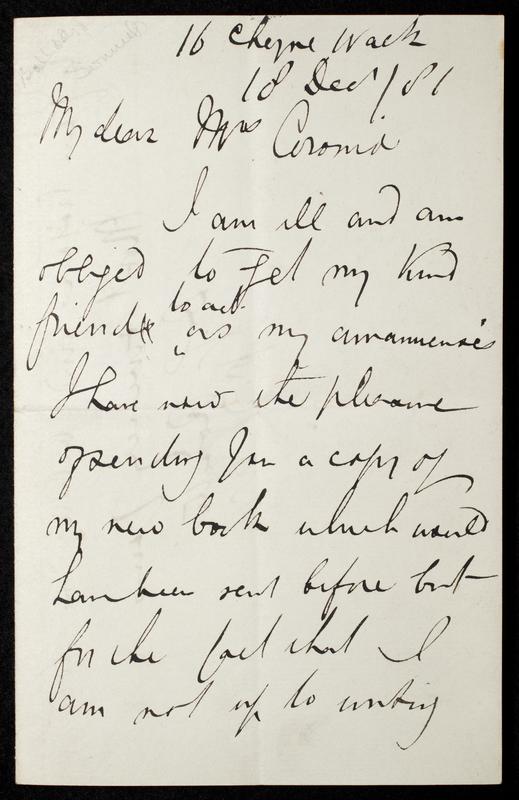 16 Cheyne Walk
18 Dec /81
My dear Mrs
I am ill and am
obliged to get my kind
friend to act
as my amanuensis
I have now the pleasure
of sending you a copy of
my new book which would
have been sent before but
for the fact that I
am not up to writing